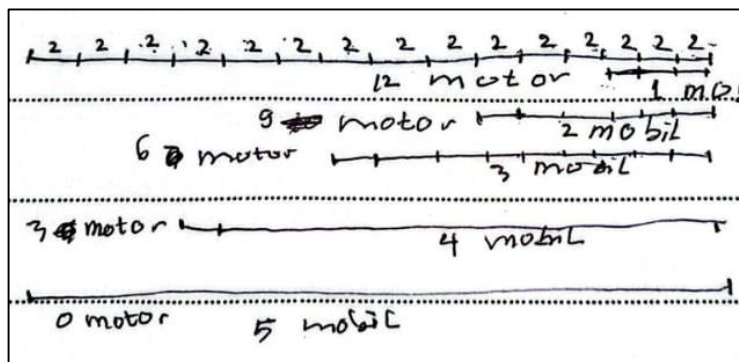 2 2 2 2 2 2 2 2 2 2 2 2 2 2 2
12 motor 1 mo
9 motor 2 mobil
6 motor 3 mobil
3 motor 4 mobil
0 motor 5 mobil